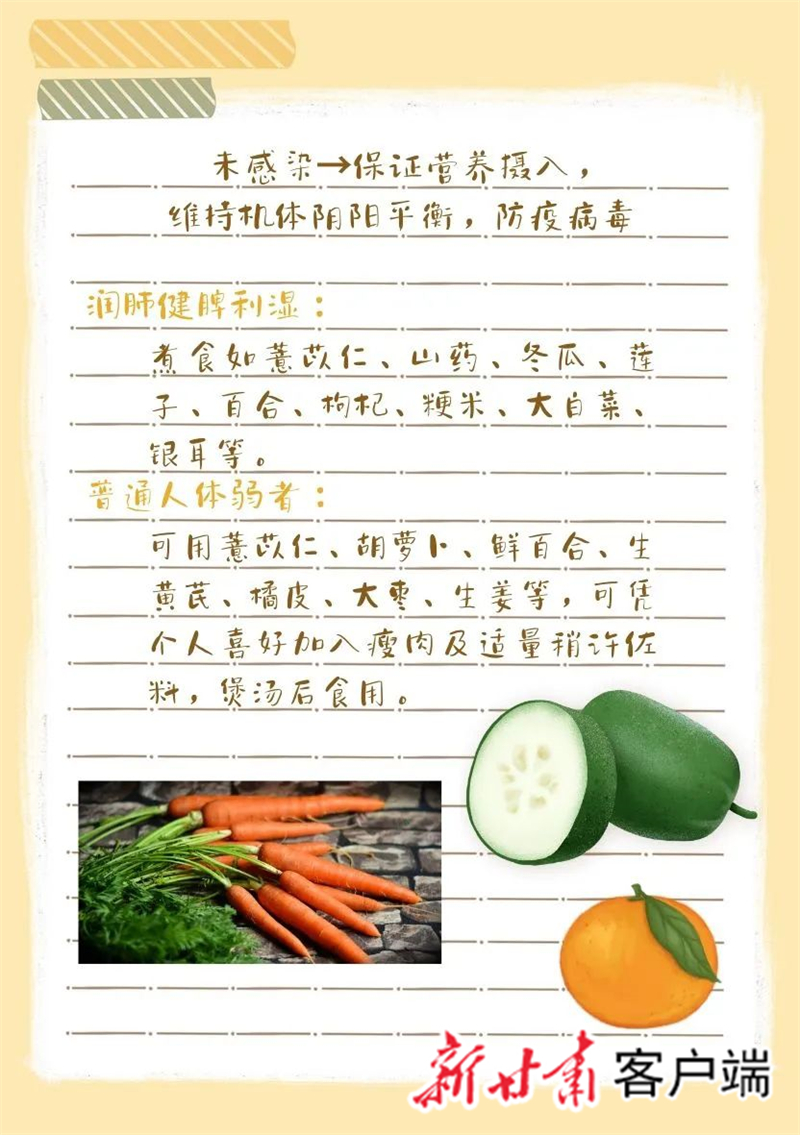 未感染→保证营养摄入，
维持机体阴阳平衡，防疫病毒
润肺健脾利湿：
煮食如薏苡仁、山药、冬瓜、莲
子、百合、枸杞、粳米、大白菜、
银耳等。
普通人体弱者：
可用薏苡仁、胡萝卜、鲜百合、生
黄芪、橘皮、大枣、生姜等，可凭
个人喜好加入瘦肉及适量稍许佐
料，煲汤后食用。
新甘肃 客户端